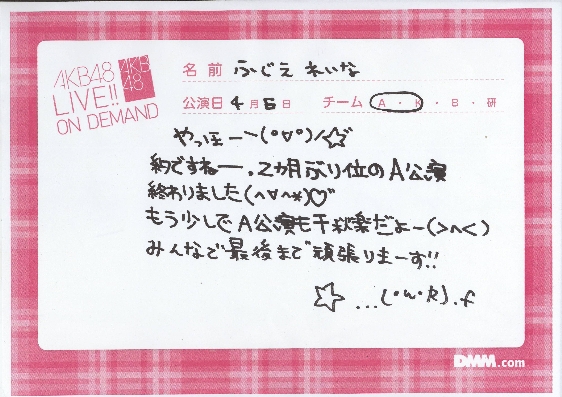 AKB48
LIVE!!
ON DEMAND
AKB
48
名前 ふじえ れいな
公演日 4月5日 チーム A・K・B・研
やっほー＼(°∀°)／☆
約ですねー、2カ月ぶり位のA公演
終わりました(^∀^*)♡"
もう少しでA公演も千秋楽だよー(>^<)
みんなで最後まで頑張りまーす!!
☆ ...(・ω・R).f
DMM.com